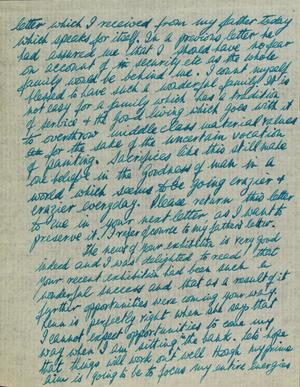 letter which I received from my father today
which speaks for itself. In a previous letter he
had assured me that I should have no fear
on account of security etc as the whole
family would be behind me. I count myself
blessed to have such a wonderful family. It is
not easy for a family which has a tradition
of service & the good living which goes with it
to overthrow middle class material values
for the sake of the uncertain vocation
of painting. Sacrifices like this still make
one believe in the goodness of man in a
world which seems to be going crazier &
crazier everyday. Please return this letter
to me in your next letter, as I want to
preserve it. I refer of course to my father's letter.
The news of your exhibition is very good
indeed and I was delighted to read that
your recent exhibition had been such a
wonderful success and that as a result of it
further opportunities were coming your way.
is perfectly right when she says that
I cannot expect opportunities to come my
way when I am sitting in the bank. Let's hope
that things will work out well though my prime
aim is going to be to focus my entire energies